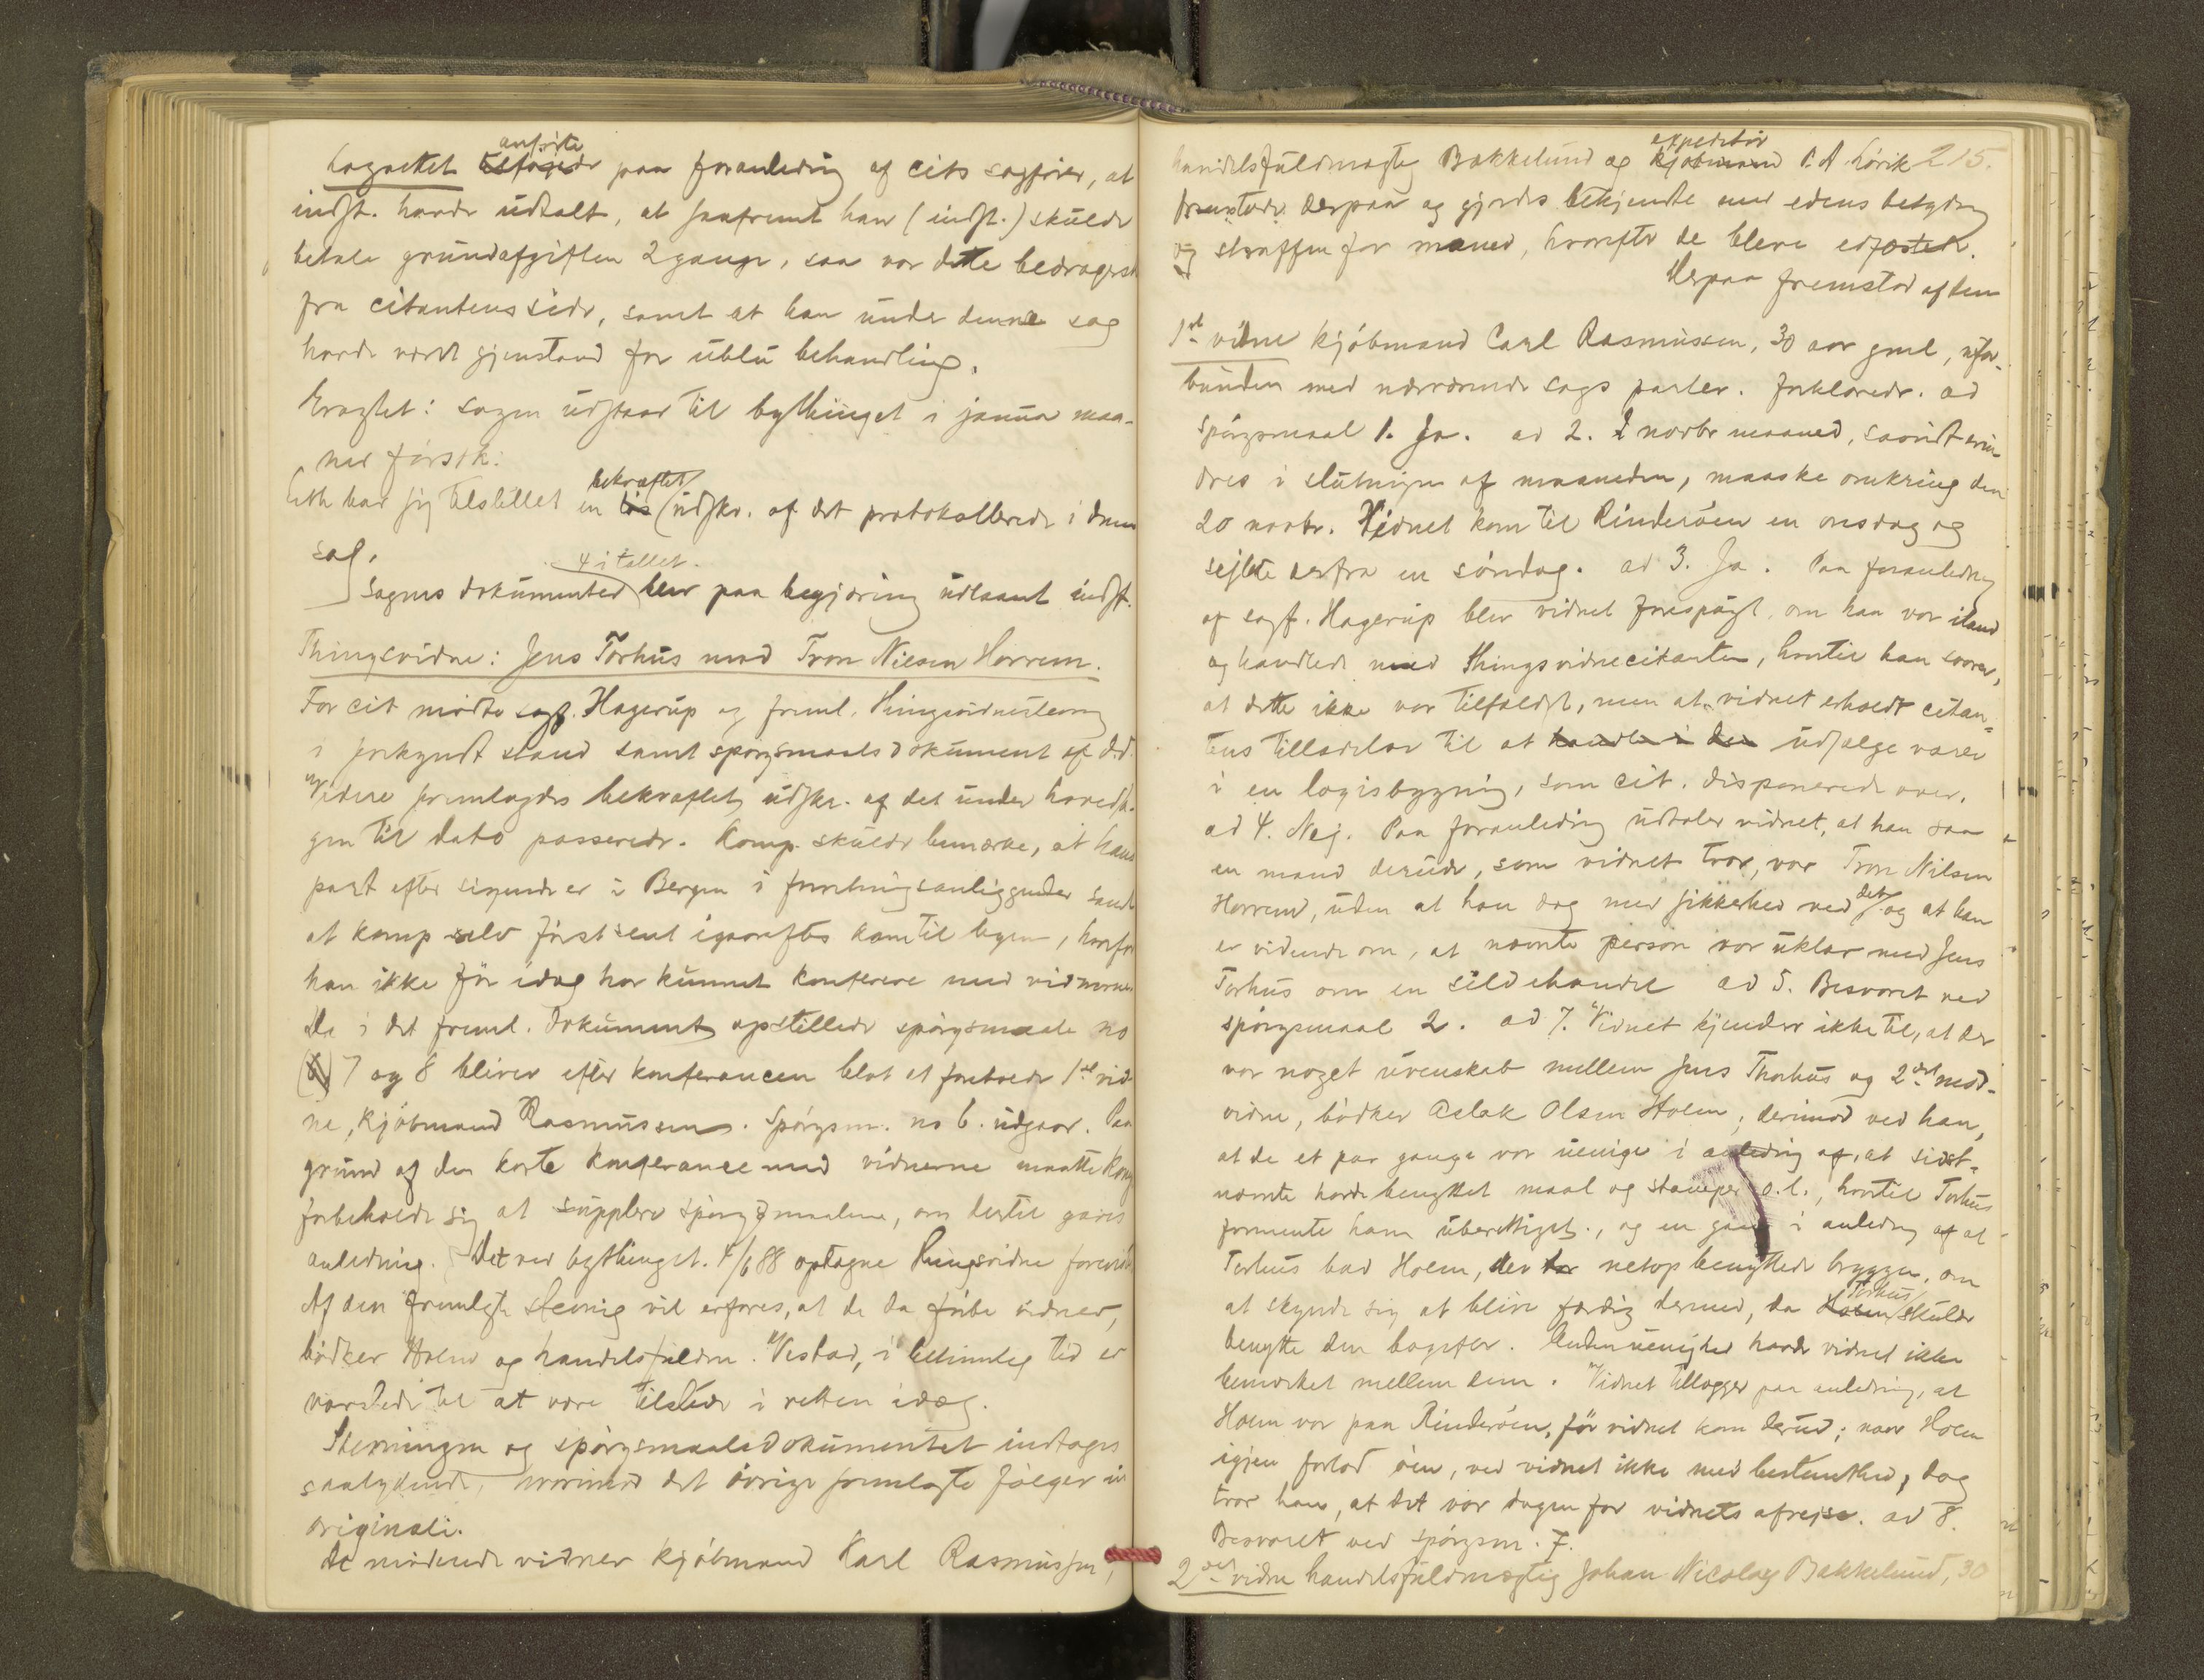 anførte
paa foranledning af cits sagfører, at
indst. havde udtalt, at saafremt han (indst.) skulde
betale grundafgiften 2 gange, saa var dette bedrageri
fra citantens side, samt at han under denne sag
havde været gjenstand for ublu behandling.
Eragtet: sagen udstaar til bythinget i janua maa-
ned
bekræftet
har sig tilstillet en udskr. af det protokollerede i denne
sag.
4 i tallet.
Sagens dokumenter blev paa begjæring udlaant indst.
Thingsvidne: Jens Torhus mod Tron Nilsen Horrem.
For cit mødte sagf. Hagerup og freml. thingsvidnestevning
i forkyndt stand samt spørgsmaalsdokument af d.d.
Videre fremlagdes bekræftet udskr. af det under hovedsa-
gen til dato passerede. Komp. skulde bemærke, at hans
part efter sigende er i Bergen i forretningsanliggender samt
at komp selv først sent igaaraftes kom til byen, hvorfor
han ikke før idag har kunnet konferere med vidnerne
De i det freml. dokument opstillede spørgsmaale no
7 og 8 bliver efter konferancen blot at foreholde 1ste vid-
ne, kjøbmand Rasmussen. Spørgsm. no 6. udgaar. Paa
grund af den korte konferance med vidnerne maatte komp
forbeholde sig at supplere spørgsmaalene, om dertil gaves
anledning. Det ved bythinget 4/6 88 optagne thingsvidne
Af den fremlagte stevning vil erfares, at de da førte vidner,
bødker Holm og handelsfuldm. Vestad, i betimelig tid er
varslede til at være tilstede i retten idag.
Stevningen og spørgsmaalsdokumentet indtages
saalydende, hvorimod det øvrige fremlagte følger in
originali.
De mødende vidner kjøbmand Karl Rasmussen,
expeditør
handelsfuldmægtig Bakkelund og kjøbmand P. A. Lørik 215.
fremstode derpaa og gjordes bekjendte med edens betydning
og straffen for mened, hvorefter de bleve edfæstede.
Herpaa fremstod af dem
1ste vidne kjøbmand Carl Rasmussen, 30 aar gml, ufor-
bunden med nærværende sags parter. forklarede. ad
spørgsmaal 1. Ja. ad 2. I novbr maaned, saavidt erin-
dres i slutningen af maaneden, maaske omkring den
20 novbr. Vidnet kom til Rinderøen en onsdag og
sejlte derfra en søndag. ad 3. Ja. Paa foranledning
af sagf. Hagerup blev vidnet forespurgt, om han var iland
og handlede med thingsvidnecitanten, hvortil han svarer,
at dette ikke var tilfældet, men at vidnet erholdt citan-
tens tilladelse til at handle i den udsælge varer
i en logisbygning, som cit. disponerede over.
ad 4. Nej. Paa foranledning udtaler vidnet, at han saa
en mand derude, som vidnet tror, var Tron Nilsen
Horrem, uden at han dog med sikkerhed ved det og at han
er vidende om, at nævnte person var uklar med Jens
Torhus om en sildehandel ad 5. Besvaret ved
spørgsmaal 2. ad 7. Vidnet kjender ikke til, at der
var noget uvenskab mellem Jens Thorhus og 2det mod-
vidne, bødker Aslak Olsen Holm; derimod ved han,
at de et par gange var uenige i anledning af, at sidst-
nævnte havde benyttet maal og stamper o.l., hvortil Torhus
formente ham uberettiget., og en gang i anledning af at
Torhus bad Holm, der netop benyttede bryggen, om
Torhus
at skynde sig at blive færdig dermed, da Holm skulde
benytte den bagefter. Anden uenighed havde vidnet ikke
bemærket mellem dem. Vidnet tillægger paa anledning, at
Holm var paa Rinderøen, før vidnet kom derud; naar Holm
igjen forlod øen, ved vidnet ikke med bestemthed; dog
tror han, at det var dagen før vidnets afrejse. ad 8.
Besvaret ved spørgsm. 7.
2det vidne handelsfuldmægtig Johan Nicolay Bakkelund, 30